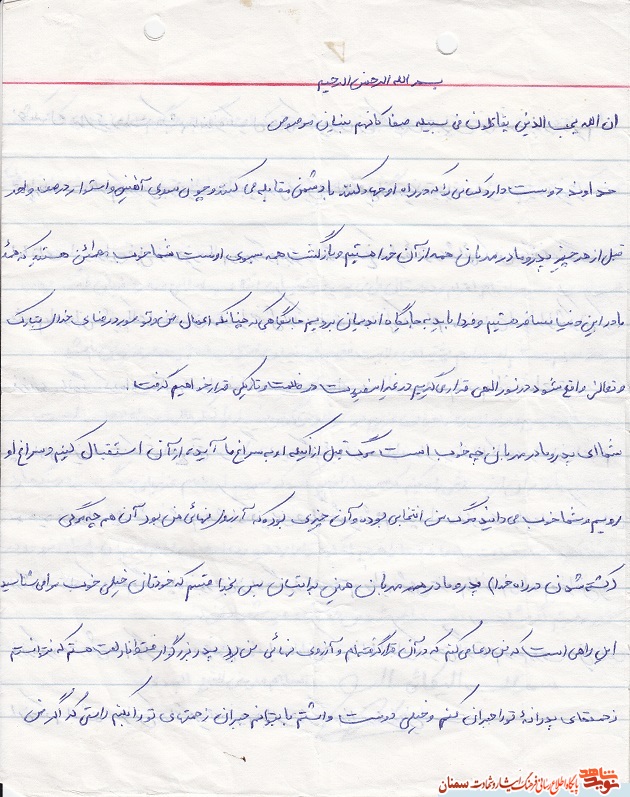 بسم الله الرحمن الرحیم
ان الله یحب الذین یقاتلون فی سبیله صفا کانهم بنیان مرصوص
خداوند دوست دارد کسانی را که در راه او جهاد کنند با دشمن مقابله می کنند و چون سدی آهنین و استوار در صف واحد
قبل از هر چیز پدر و مادر مهربان همه از آن خدا هستیم و بازگشت همه بسوی اوست شما خوب مطمئن هستید که همهٔ
ما در این دنیا مسافر هستیم و فردا باید به جایگاه ابدیمان برویم جایگاهی که چنانکه اعمال من و تو مورد رضای خدای تبارک
و تعالی واقع شود در نور الهی قرار می گیریم در غیر اینصورت در ظلمت و تاریکی قرار خواهیم گرفت.
شما ای پدر و مادر مهربان چه خوب است مرگ قبل از اینکه او به سراغ ما آید ما از آن استقبال کنیم و سراغ او
رویم و شما خوب می دانید مرگ من انتخابی بوده و آن چیزی بوده که آرزوی نهائی من بود آن هم چه مرگی
(کشته شدن در راه خدا) پدر و مادر مهربان من بخدا قسم که خودتان خیلی خوب مرا می شناسید
این راهی است که من دعا می کنم که در آن قرار گرفته ام و آرزوی نهائی من بود پدر بزرگوار فقط ناراحت هستم که نتوانستم
زحمتهای پدرانهٔ تو را جبران کنم و خیلی دوست داشتم تا بتوانم جبران زحمتهای تو را بکنم راستی که اگر من
نوید شاهد
پایگاه اطلاع رسانی فرهنگ ایثار و شهادت سمنان